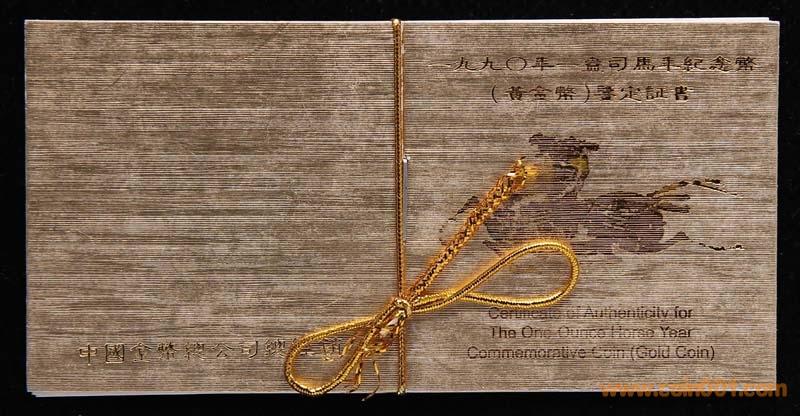 一九九〇年一盎司馬年紀念幣
(黃金幣)鑒定証書
Certificate of Authenticity for
The One-Ounce Horse Year
Commemorative Coin (Gold Coin)
中國金幣總公司總經
www.coin001.com